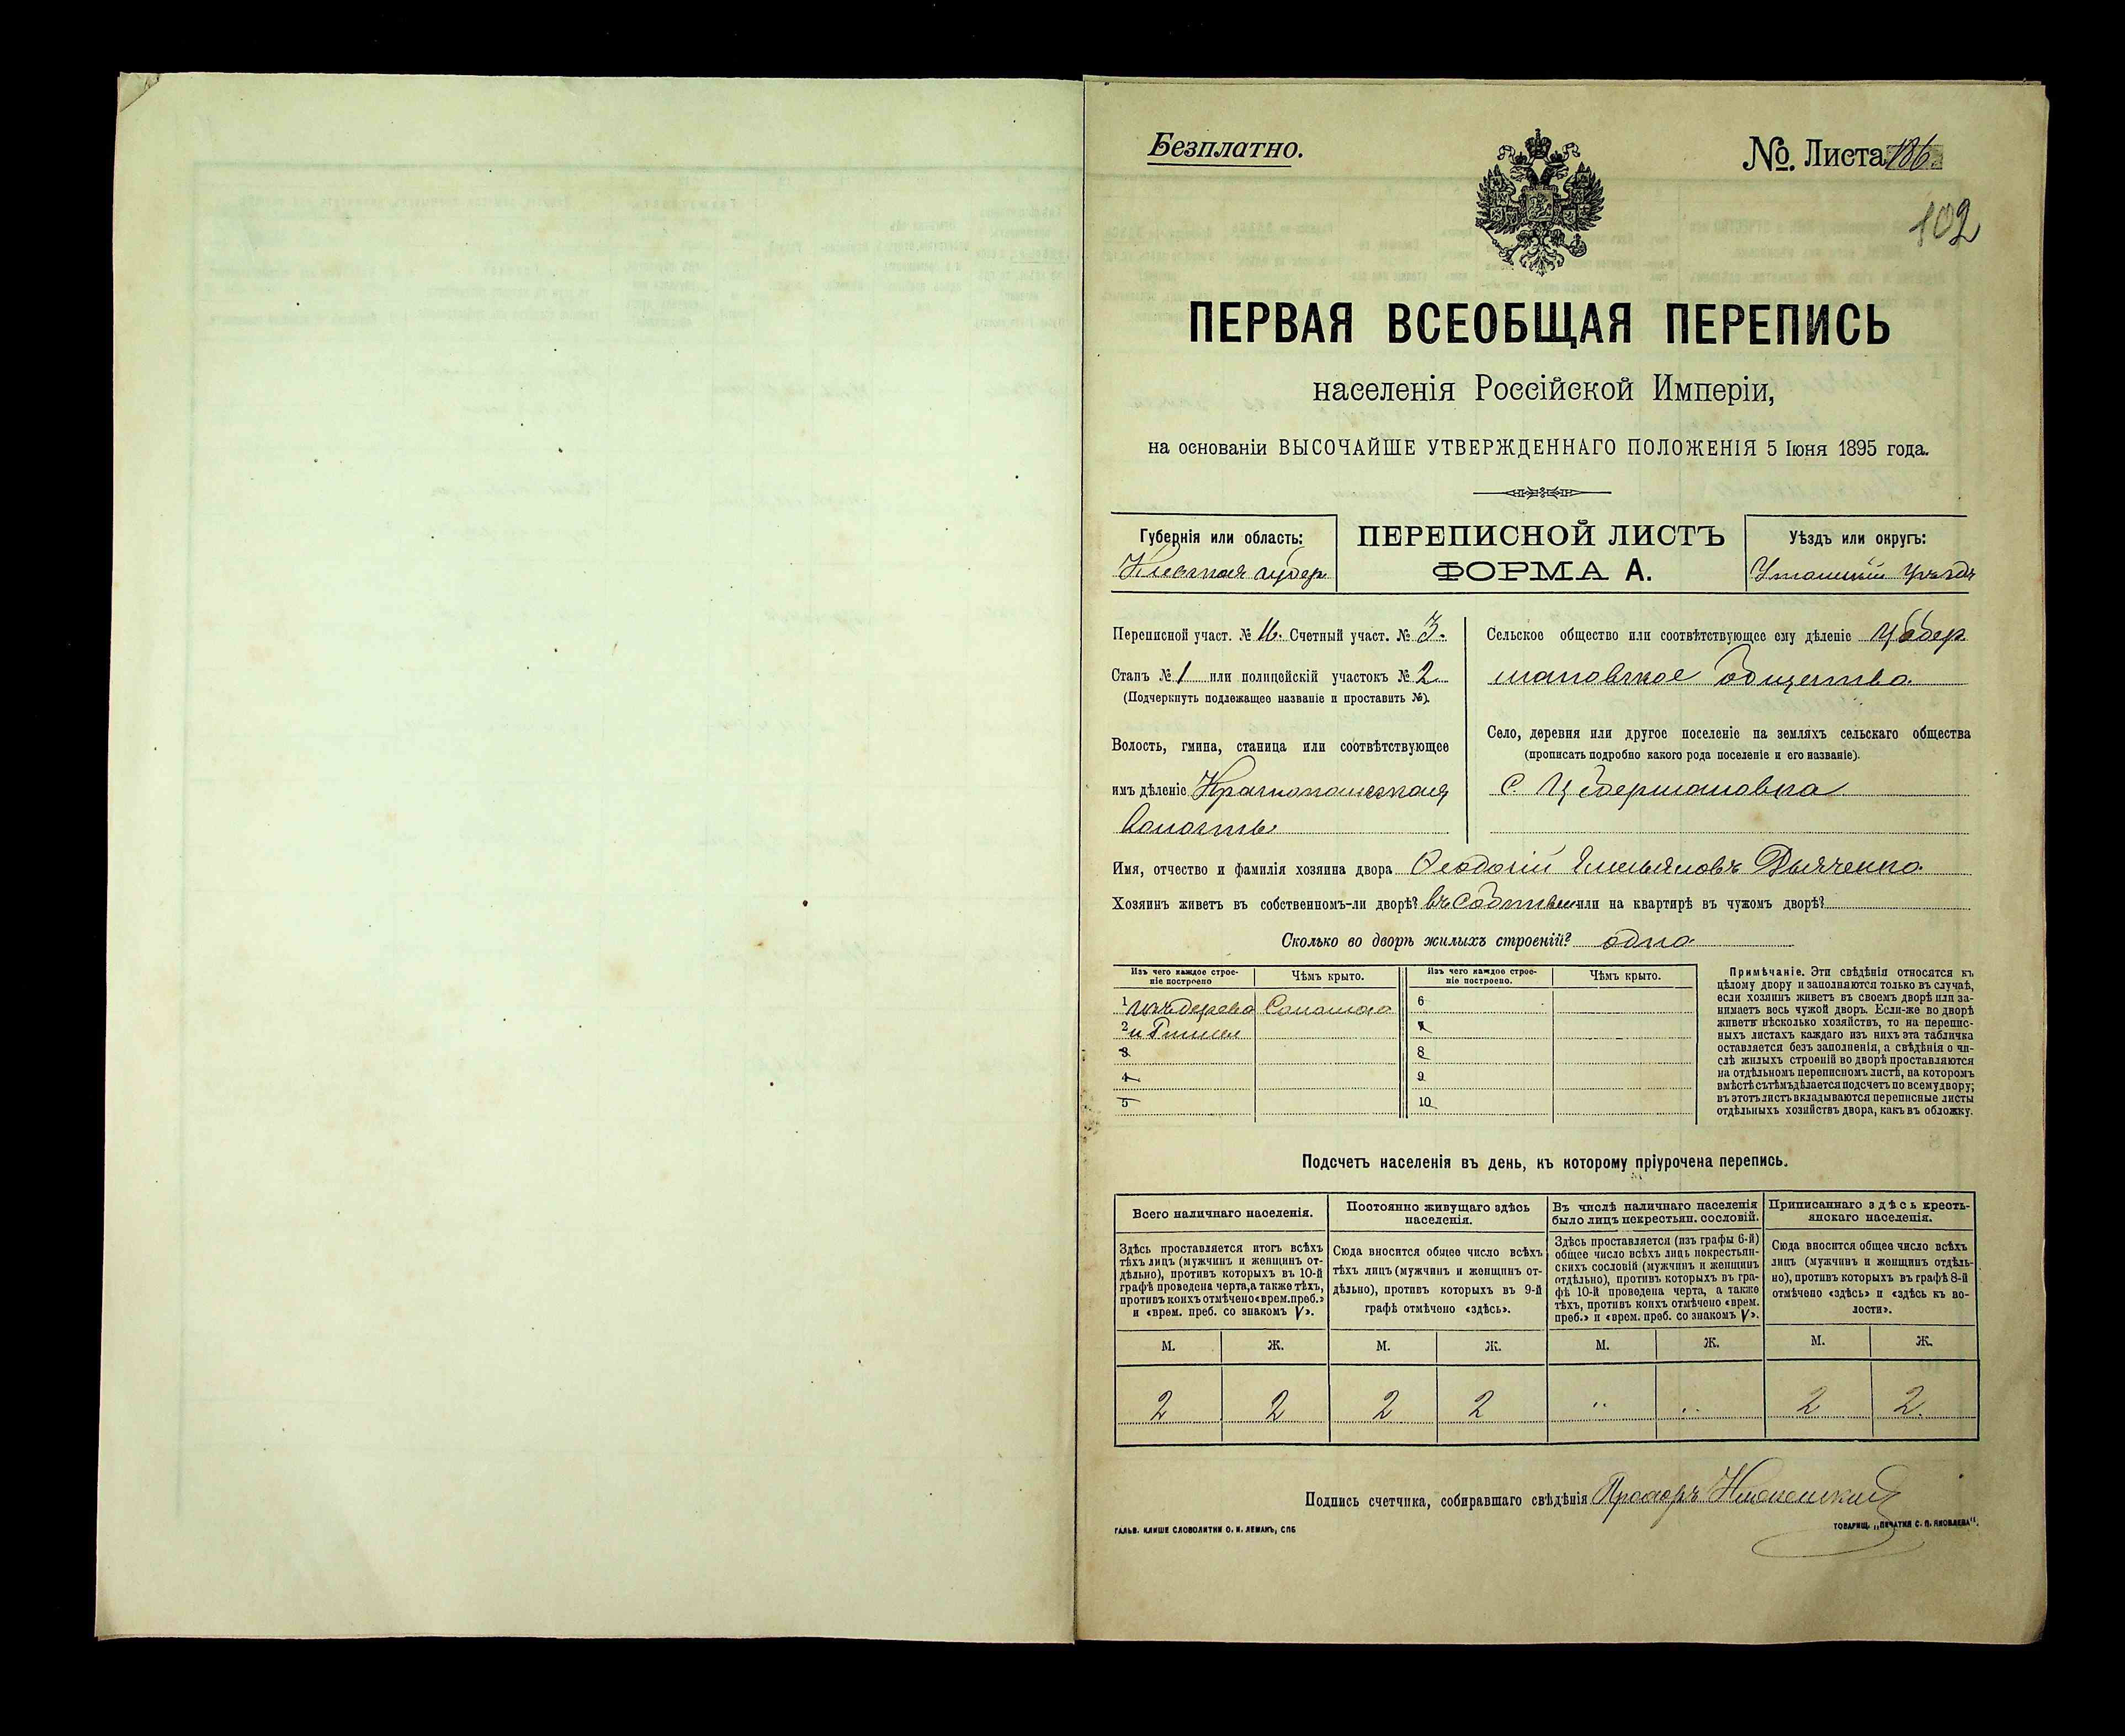 Безплатно.
№. Листа 186.
102
ПЕРВАЯ ВСЕОБЩАЯ ПЕРЕПИСЬ
населенія Россійской Имперіи,
на основаніи ВЫСОЧАЙШЕ УТВЕРЖДЕННАГО ПОЛОЖЕНІЯ 5 Іюня 1895 года.
Губернія или область:
Кіевская губер
ПЕРЕПИСНОЙ ЛИСТЪ
ФОРМА А.
Уѣздъ или округъ:
Уманскій уѣздъ
Переписной участ. № 16. Счетный участ. № 3.
Станъ № 1 или полицейскій участокъ № 2
(Подчеркнуть подлежащее названіе и проставить №).
Волость, гмина, станица или соотвѣтствующее
имъ дѣленіе Краснопольская
волость
Сельское общество или соотвѣтствующее ему дѣленіе Цыбер
мановское общество
Село, деревня или другое поселеніе на земляхъ сельскаго общества
(прописать подробно какого рода поселеніе и его названіе).
С. Цыбермановка
Имя, отчество и фамилія хозяина двора Феодосій Емельяновъ Дьяченко
Хозяинъ живетъ въ собственномъ-ли дворѣ? въ собствен или на квартирѣ въ чужомъ дворѣ?
Сколько во дворѣ жилыхъ строеній? одно
Изъ чего каждое строе-
ніе построено
Чѣмъ крыто.
Изъ чего каждое строе-
ніе построено.
Чѣмъ крыто.
1 изъ дерева Соломою 6
2 и глины 7
3 8
4 9
5 10
Примѣчаніе. Эти свѣдѣнія относятся къ
цѣлому двору и заполняются только въ случаѣ,
если хозяинъ живетъ въ своемъ дворѣ или за-
нимаетъ весь чужой дворъ. Если-же во дворѣ
живетъ нѣсколько хозяйствъ, то на перепис-
ныхъ листахъ каждаго изъ нихъ эта табличка
оставляется безъ заполненія, а свѣдѣнія о чи-
слѣ жилыхъ строеній во дворѣ проставляются
на отдѣльномъ переписномъ листѣ, на которомъ
вмѣстѣ съ тѣмъ дѣлается подсчетъ по всему двору;
въ этотъ листъ вкладываются переписные листы
отдѣльныхъ хозяйствъ двора, какъ въ обложку.
Подсчетъ населенія въ день, къ которому пріурочена перепись.
Всего наличнаго населенія.
Постоянно живущаго здѣсь
населенія.
Въ числѣ наличнаго населенія
было лицъ некрестьян. сословій.
Приписаннаго здѣсь кресть-
янскаго населенія.
Здѣсь проставляется итогъ всѣхъ
тѣхъ лицъ (мужчинъ и женщинъ от-
дѣльно), противъ которыхъ въ 10-й
графѣ проведена черта, а также тѣхъ,
противъ коихъ отмѣчено «врем. преб.»
и «врем. преб. со знакомъ V».
Сюда вносится общее число всѣхъ
тѣхъ лицъ (мужчинъ и женщинъ от-
дѣльно), противъ которыхъ въ 9-й
графѣ отмѣчено «здѣсь».
Здѣсь проставляется (изъ графы 6-й)
общее число всѣхъ лицъ некрестьян-
скихъ сословій (мужчинъ и женщинъ
отдѣльно), противъ которыхъ въ гра-
фѣ 10-й проведена черта, а также
тѣхъ, противъ коихъ отмѣчено «врем.
преб.» и «врем. преб. со знакомъ V».
Сюда вносится общее число всѣхъ
лицъ (мужчинъ и женщинъ отдѣль-
но), противъ которыхъ въ графѣ 8-й
отмѣчено «здѣсь» и «здѣсь къ во-
лости».
М. Ж. М. Ж. М. Ж. М. Ж.
2 2 2 2 „ „ 2 2.
Подпись счетчика, собиравшаго свѣдѣнія Прохоръ
ГАЛЬВ. КЛИШЕ СЛОВОЛИТНИ О. И. ЛЕМАНЪ, СПБ
ТОВАРИЩ. „ПЕЧАТНЯ С. П. ЯКОВЛЕВА".